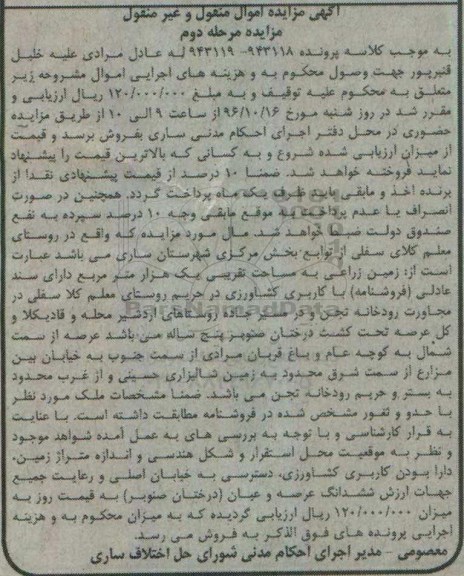 آگهی مزایده اموال منقول و غیر منقول
مزایده مرحله دوم
به موجب کلاسه پرونده ۹۴۳۱۱۸- ۹۴۳۱۱۹ له عادل مرادی علیه خلیل
قنبرپور جهت وصول محکوم به و هزینه های اجرایی اموال مشروحه زیر
متعلق به محکوم علیه توقیف و به مبلغ ۱۲۰/۰۰۰/۰۰۰ ریال ارزیابی و
مقرر شد در روز شنبه مورخ ۹۶/۱۰/۱۶ از ساعت ۹ الی ۱۰ از طریق مزایده
حضوری در محل دفتر اجرای احکام مدنی ساری بفروش برسد و قیمت
از میزان ارزیابی شده شروع و به کسانی که بالاترین قیمت را پیشنهاد
نماید فروخته خواهد شد. ضمنا ۱۰ درصد از قیمت پیشنهادی نقدا از
برنده اخذ و مابقی باید ظرف یک ماه پرداخت گردد. همچنین در صورت
انصراف یا عدم پرداخت به موقع مابقی وجه ۱۰ درصد سپرده به نفع
صندوق دولت ضبط خواهد شد. مال مورد مزایده که واقع در روستای
معلم کلای سفلی از توابع بخش مرکزی شهرستان ساری می باشد عبارت
است از: زمین زراعی به مساحت تقریبی یک هزار متر مربع دارای سند
عادلی (فروشنامه) با کاربری کشاورزی در حریم روستای معلم کلا سفلی در
مجاورت رودخانه تجن و در مسیر جاده روستاهای اردشیر محله و قادیکلا و
کل عرصه تحت کشت درختان صنوبر پنج ساله می باشد عرصه از سمت
شمال به کوچه عام و باغ قربان مرادی از سمت جنوب به خیابان بین
مزارع از سمت شرق محدود به زمین شالیزاری حسینی و از غرب محدود
به بستر و حریم رودخانه تجن می باشد. ضمنا مشخصات ملک مورد نظر
با حدو و ثغور مشخص شده در فروشنامه مطابقت داشته است. با عنایت
به قرار کارشناسی و با توجه به بررسی های به عمل آمده شواهد موجود
و نظر به موقعیت محل استقرار و شکل هندسی و اندازه متراژ زمین،
دارا بودن کاربری کشاورزی، دسترسی به خیابان اصلی و رعایت جمیع
جهات ارزش ششدانگ عرصه و عیان (درختان صنوبر) به قیمت روز به
میزان ۱۲۰/۰۰۰/۰۰۰ ریال ارزیابی گردیده که به میزان محکوم به و هزینه
اجرایی پرونده های فوق الذکر به فروش می رسد.
معصومی - مدیر اجرای احکام مدنی شورای حل اختلاف ساری